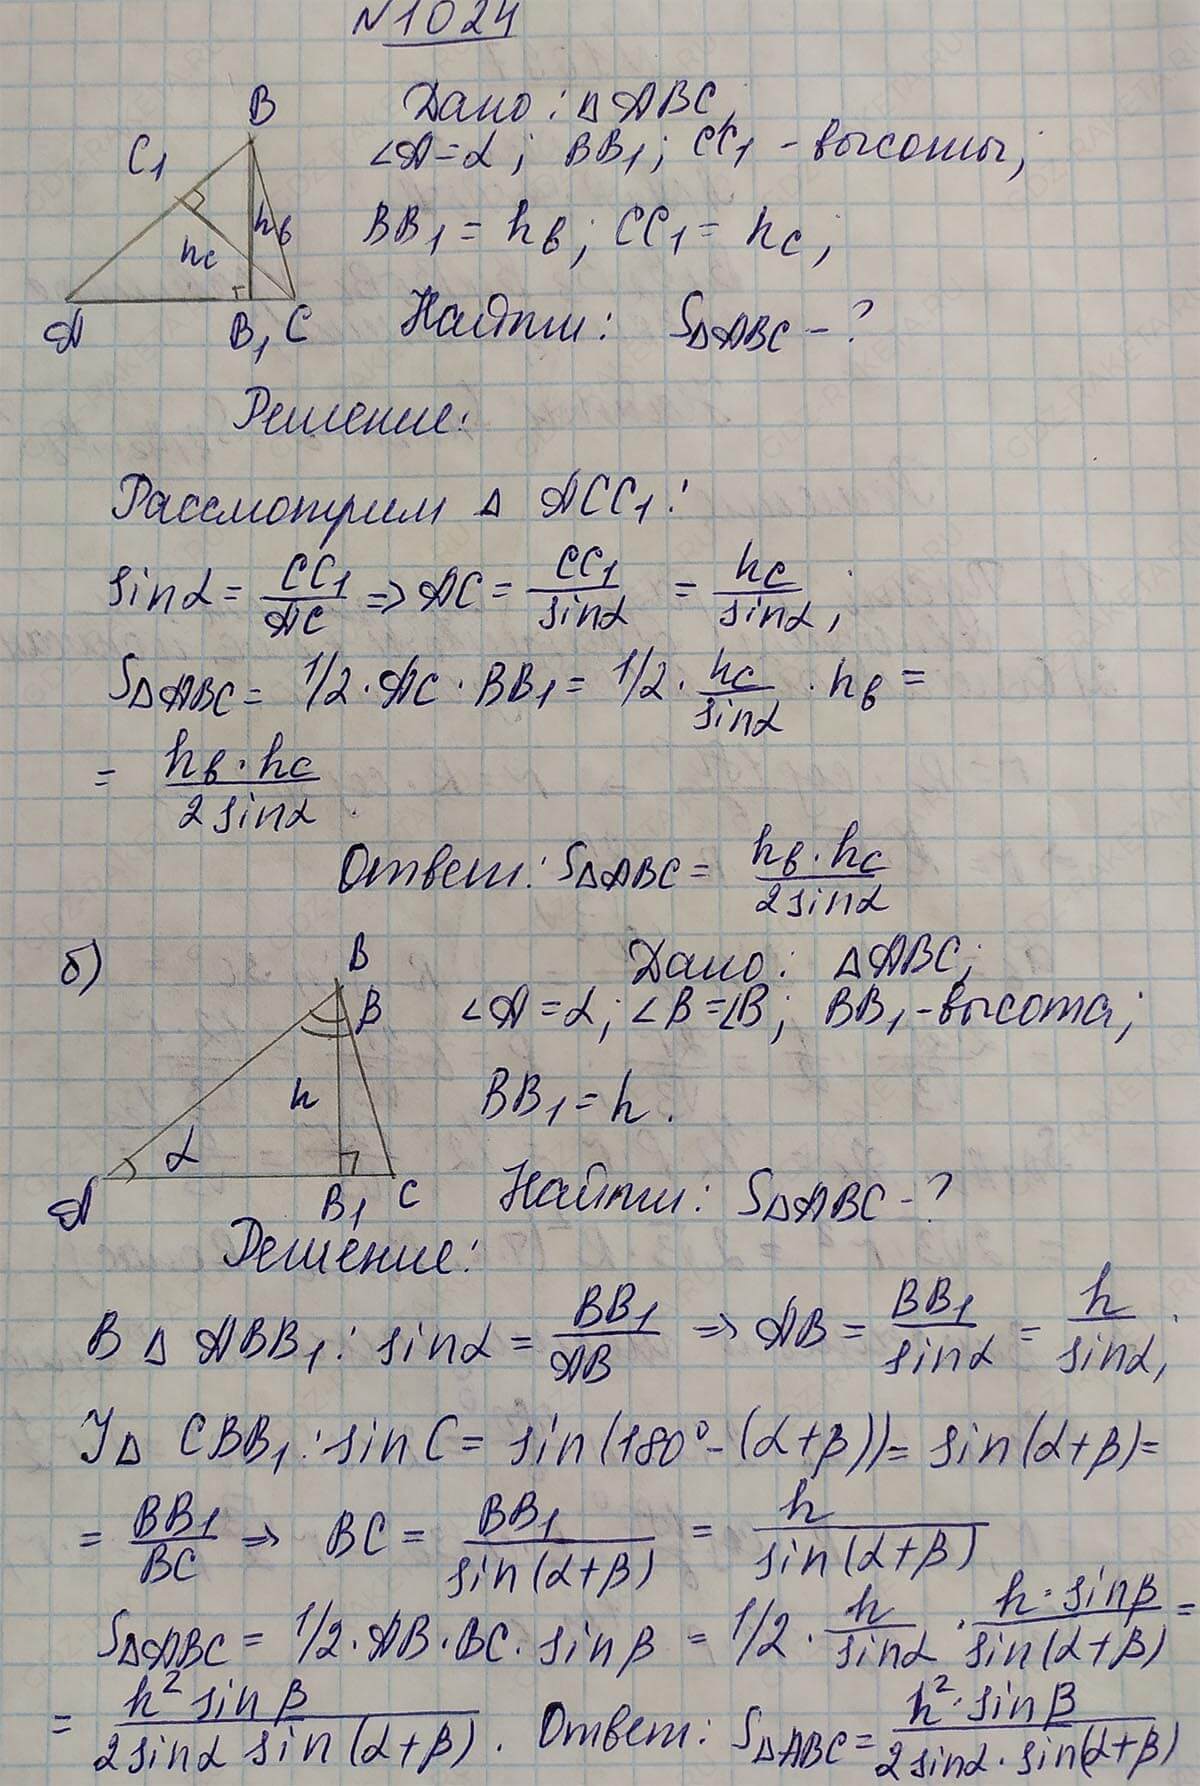 №1024
B
C1
hв
hc
A
B1 C
Дано: △ABC,
∠A=α; BB1; CC1 - высоты;
BB1 = hв; CC1 = hc;
Найти: S△ABC - ?
Решение:
Рассмотрим △ ACC1:
sinα = CC1/AC => AC = CC1/sinα = hc/sinα;
S△ABC = 1/2 · AC · BB1 = 1/2 · hc/sinα · hв =
= hв · hc/2sinα
Ответ: S△ABC = hв · hc/2sinα
б)
B
β
h
α
A
B1 C
Дано: △ABC;
∠A = α; ∠B = ∠B; BB1 - высота;
BB1 = h.
Найти: S△ABC - ?
Решение:
В △ ABB1: sinα = BB1/AB => AB = BB1/sinα = h/sinα;
У△ CBB1: sin C = sin(180° - (α+β)) = sin(α+β) =
= BB1/BC => BC = BB1/sin(α+β) = h/sin(α+β)
S△ABC = 1/2 · AB · BC · sinβ = 1/2 · h/sinα · h · sinβ/sin(α+β) =
= h² sinβ/2sinα sin(α+β). Ответ: S△ABC = h² · sinβ/2sinα · sin(α+β)